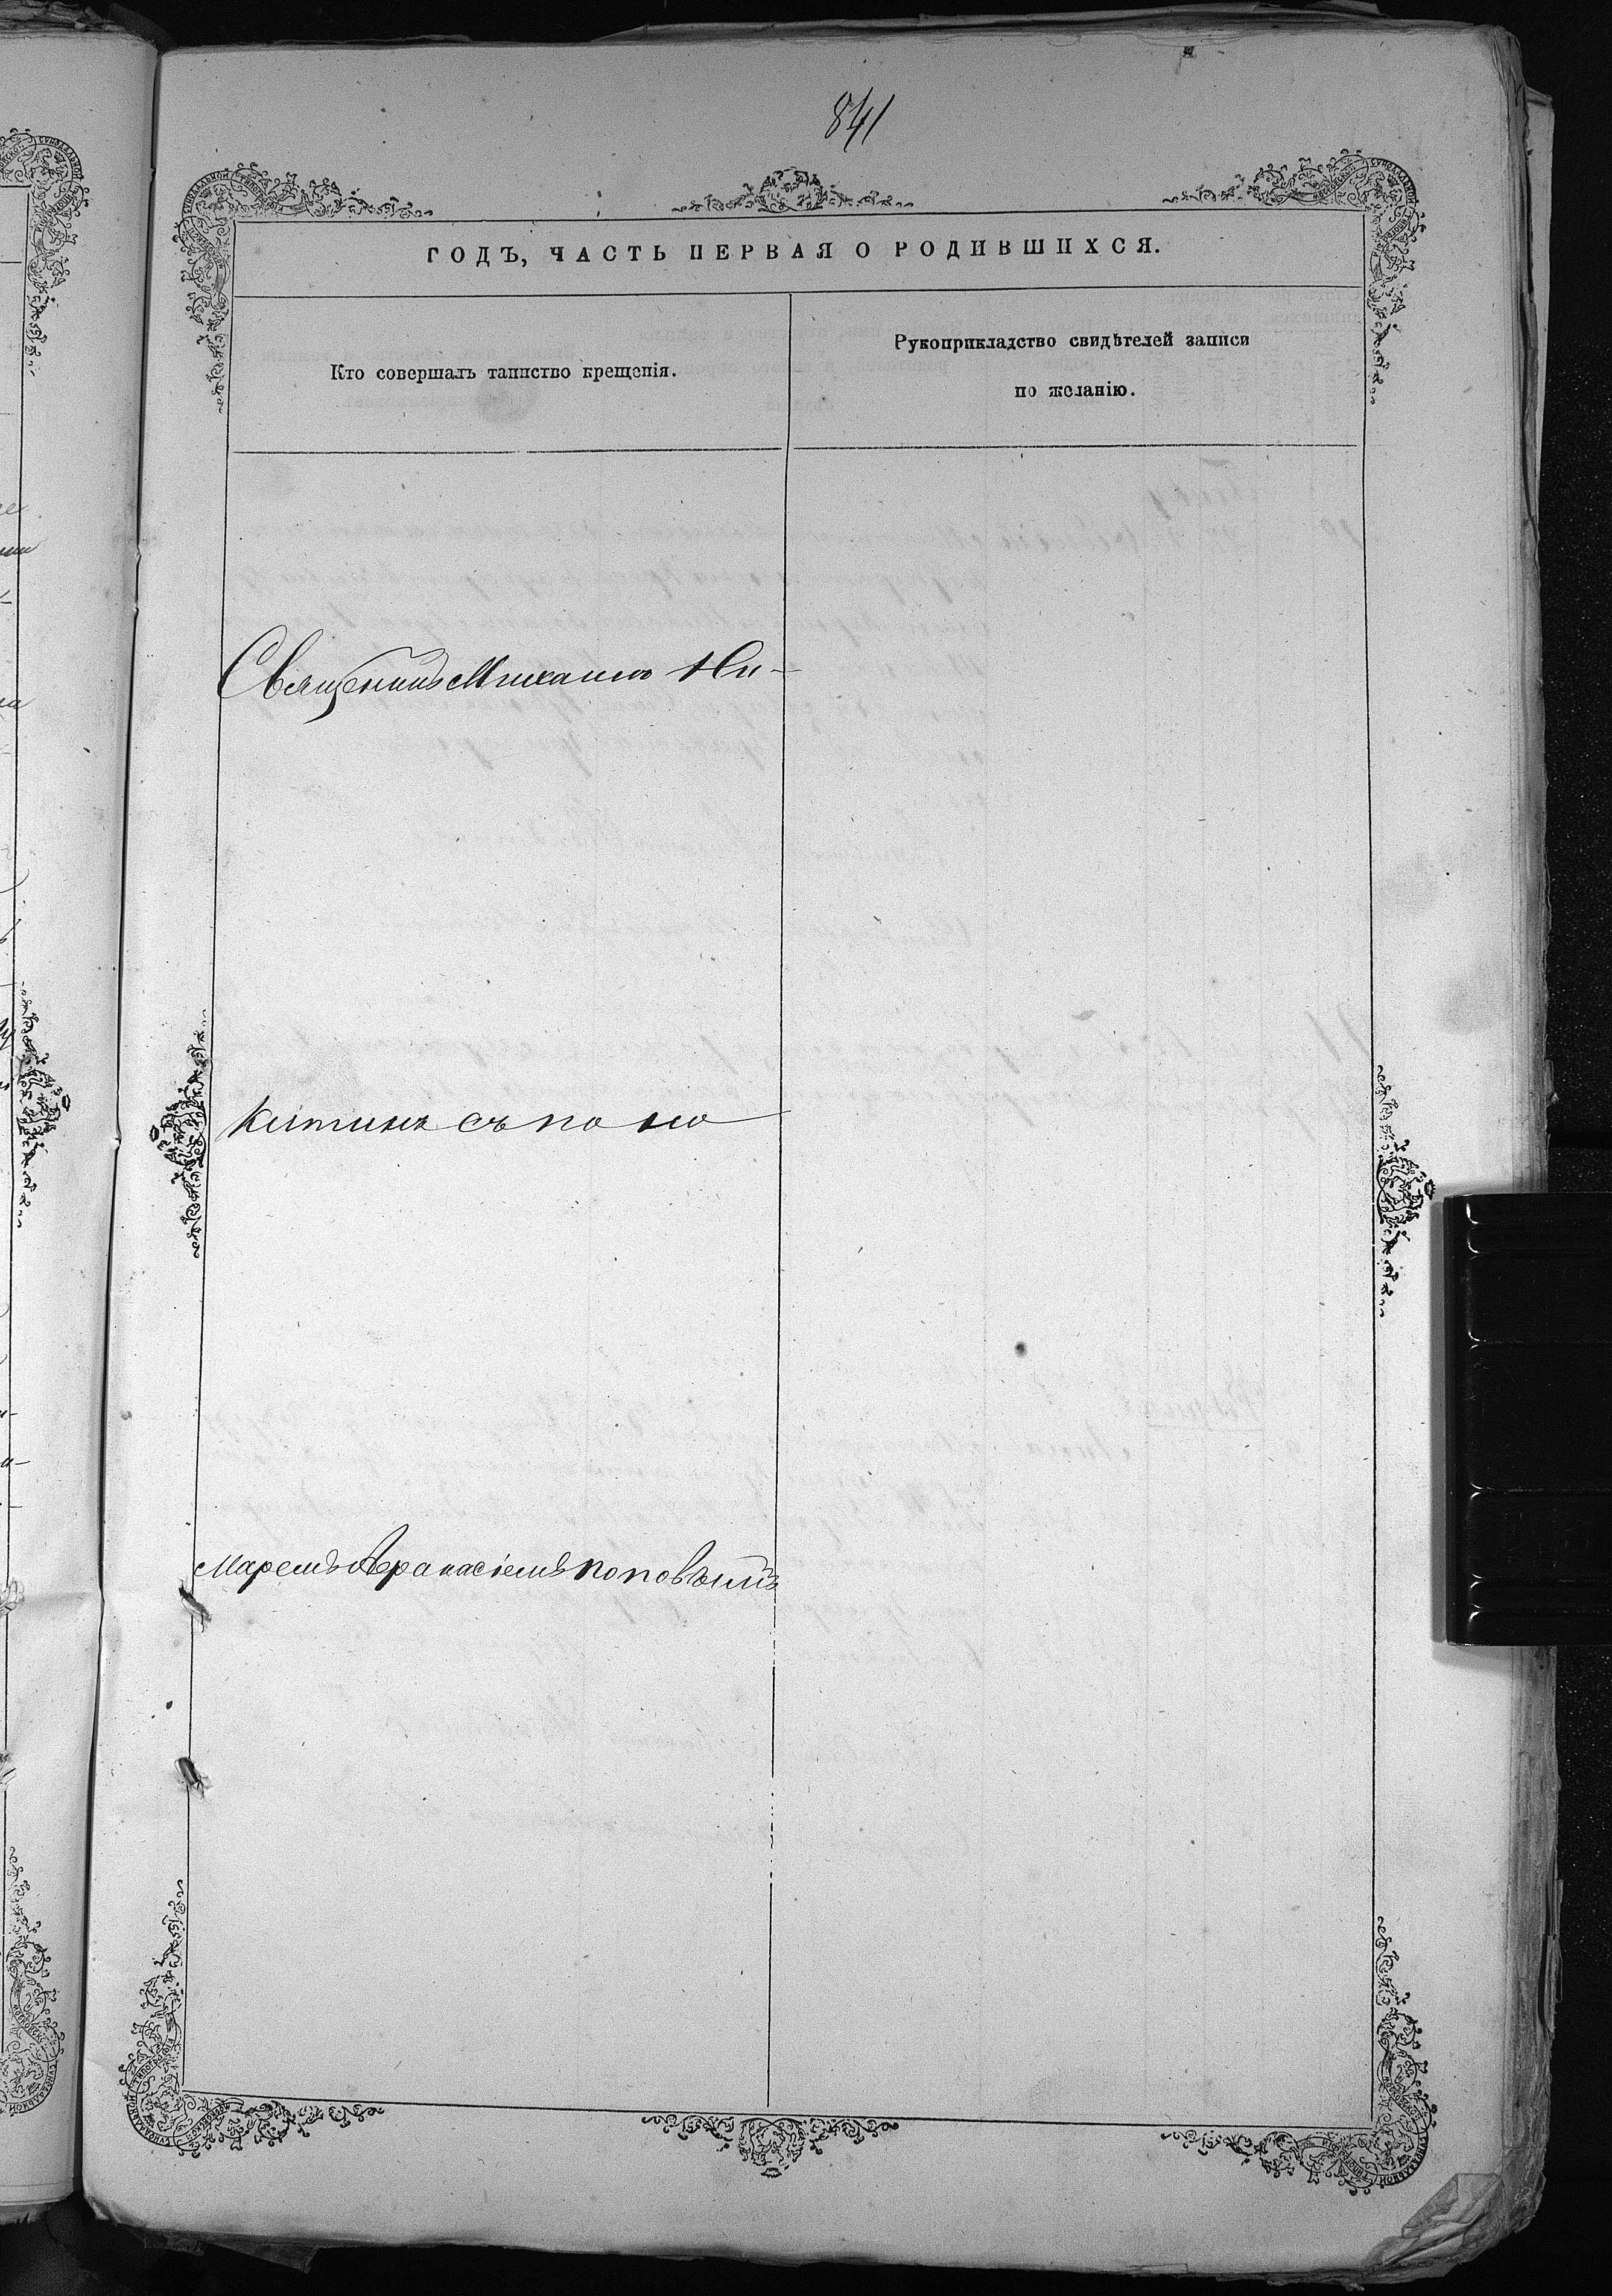 841
ГОДЪ, ЧАСТЬ ПЕРВАЯ О РОДИВШИХСЯ.
Кто совершалъ таинство крещенія.
Рукоприкладство свидѣтелей записи
по желанію.
Священникъ Михаилъ Ни-
китинъ съ поно
маремъ Афанасіемъ Поповымъ